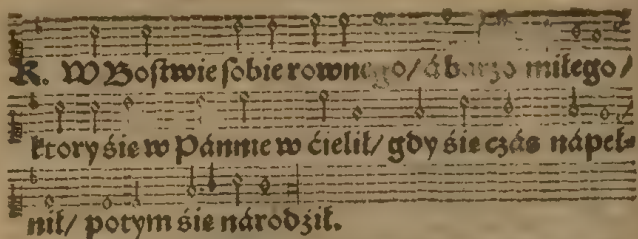 R. W Bostwie sobie rownego/ á barzo miłego/
ktory śie w Pánnie w ćielił/ gdy śie czás nápeł⸗
nił/ potym śie národził.